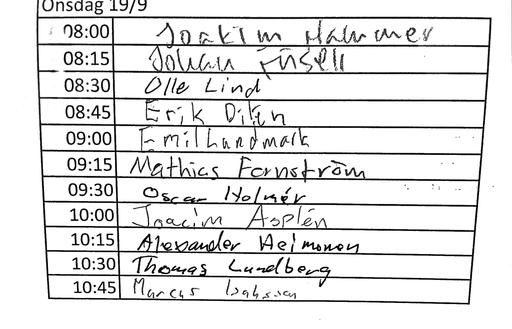 Onsdag 19/9
08:00 Joakim Hammer
08:15 Johan
08:30 Olle Lind
08:45 Erik
09:00 Emil Landmark
09:15 Mathias Fornström
09:30 Oscar Holmér
10:00 Joacim Asplén
10:15 Alexander Heimonen
10:30 Thomas Lundberg
10:45 Marcus